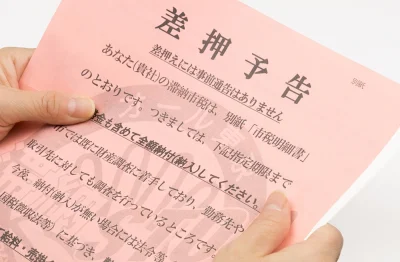 別紙
差押予告
差押えには事前通告はありません
あなた(貴社)の滞納市税は、別紙「市税明細書」
のとおりです。つきましては、下記指定期限まで
金も含めて全額納付(納入)してください。
では既に財産調査に着手しており、勤務先や
取引先に対しても調査を行っているところです。
今後、納付(納入)が無い場合には法令等
国税徴収法等)に基づき、
給料、売掛